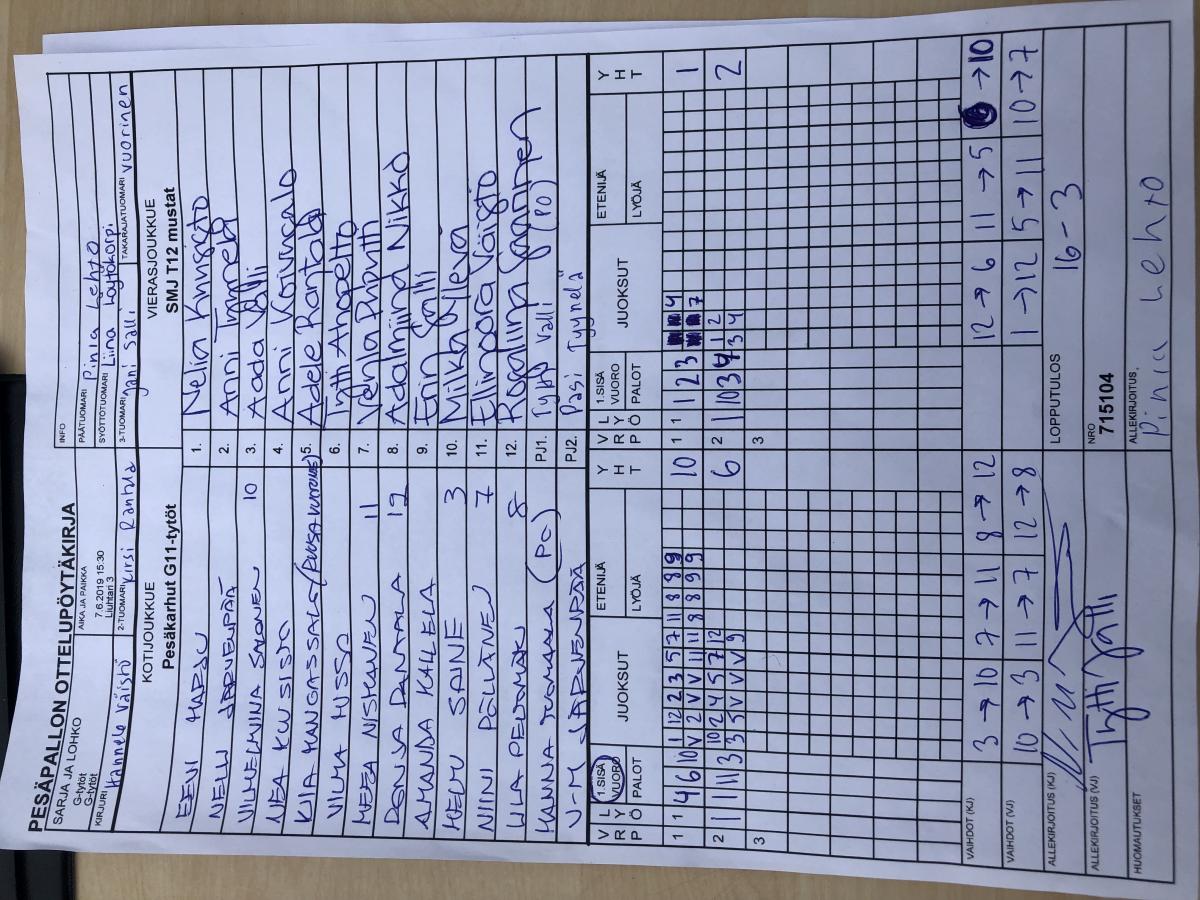 PESÄPALLON OTTELUPÖYTÄKIRJA
SARJA JA LOHKO
G-tytöt
G-tytöt
AIKA JA PAIKKA
7.6.2019 15:30
Liuhtari 3
INFO
PÄÄTUOMARI Pinia Lehto
SYÖTTÖTUOMARI Liina Löytökorpi
KIRJURI Hannele Väistö
2-TUOMARI Kirsi Rantala
3-TUOMARI Jani Salli
TAKARAJATUOMARI Vuorinen
KOTIJOUKKUE
VIERASJOUKKUE
Pesäkarhut G11-tytöt
SMJ T12 mustat
EEVI HARJU 1. Nelia Knuisto
NELLI JÄRVENPÄÄ 2. Anni
VILHELMINA SALONEN 10 3. Aada Valli
NEA KUUSISTO 4. Anni Koivusalo
KANGASSALO 5. Adele Rantala
VILMA HISSA 6. Intti Ahopelto
NEEA NISKANEN 11 7. Venla
RANTALA 12 8. Adalmiina Nikko
AMANDA KALLELA 9. Erin Salli
SAINE 3 10. Milka Ylevä
NIINI PÖLLÄNEN 7 11. Ellinoora Väistö
8 12.
(PO) PJ1. Valli (PO)
V-M JÄRVENPÄÄ PJ2. Pasi Tyynelä
V R P
L Y Ö
1.SISÄ VUORO
PALOT
JUOKSUT
ETENIJÄ
LYÖJÄ
Y H T
V R P
L Y Ö
1.SISÄ VUORO
PALOT
JUOKSUT
ETENIJÄ
LYÖJÄ
Y H T
1 1 4 6 10 1 12 2 3 5 7 11 8 8 9 10 1 1 1 2 3 4 1
V 2 V V 11 11 8 8 9 9 7
2 1 11 3 10 2 4 5 7 12 6 2 1 10 3 4 1 2 2
3 5 V V V 9 3 4
3 3
VAIHDOT (KJ) 3→10 7→11 8→12 12→6 11→5 →10
VAIHDOT (VJ) 10→3 11→7 12→8 1→12 5→11 10→7
ALLEKIRJOITUS (KJ)
LOPPUTULOS 16-3
ALLEKIRJOITUS (VJ)
NRO
715104
HUOMAUTUKSET
ALLEKIRJOITUS,
Pinia Lehto